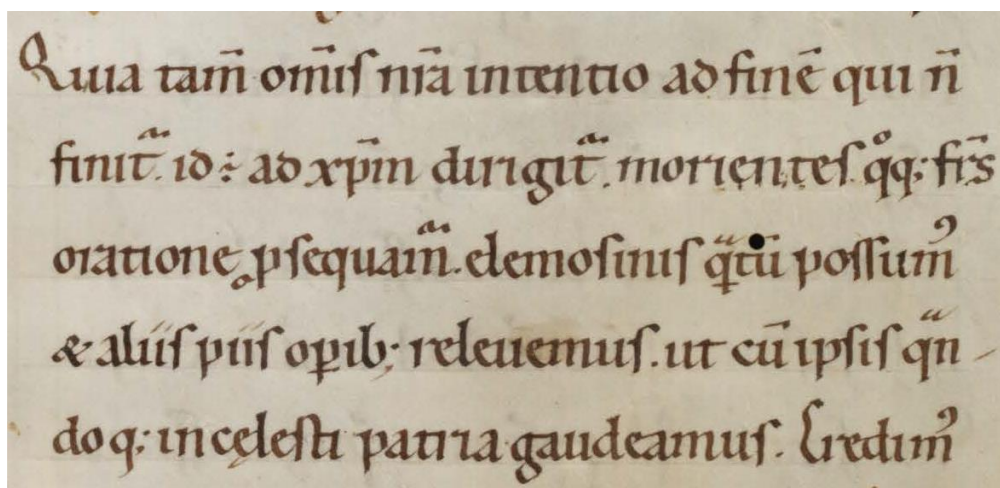 Quia tam̄ om̄is nr̄a intentio ad finē qui n̄
finit᷑. id ÷ ad xp̄m dirigit᷑. morientes qͦq; fr̄s
oratione ꝓsequam᷑. elemosinis qᷓtū possumꝰ
& aliis piis oꝑib; releuemus. ut cū ipsis qᷓn
doq; in cęlesti patria gaudeamus. Credimꝰ